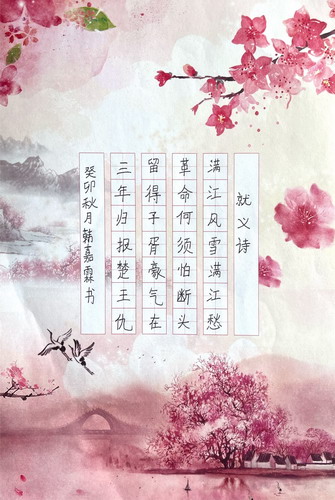 就义诗
满江风雪满江愁
革命何须怕断头
留得子胥豪气在
三年归报楚王仇
癸卯秋月韩嘉霖书